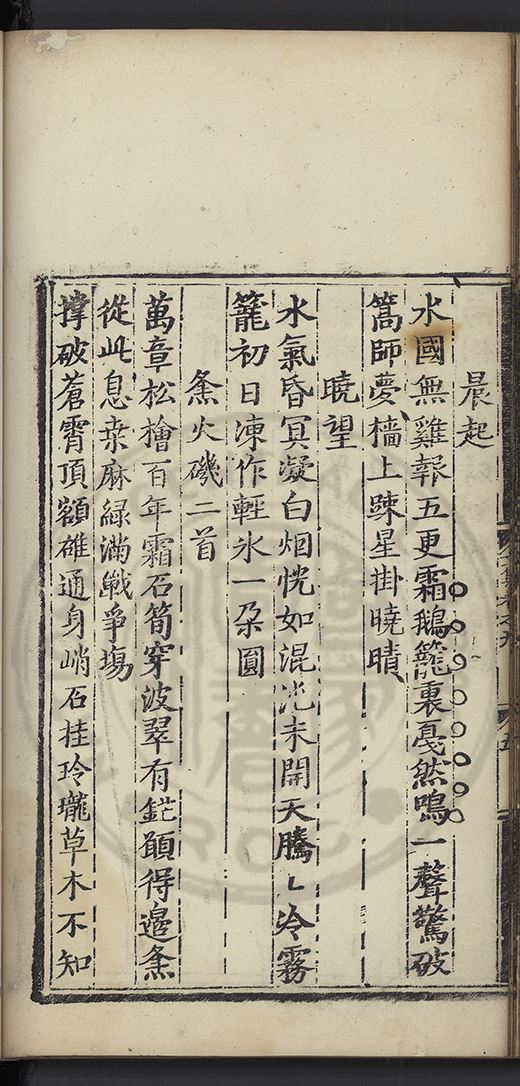 晨起
水國無雞報五更霜鵝籠裏戞然鳴一聲驚破
篙師夢檣上踈星掛曉晴
曉望
水氣昏冥凝白烟恍如混沌未開天騰〻冷霧
籠初日凍作輕氷一朶圓
夆火磯二首
萬章松檜百年霜石筍穿波翠有鋩願得邉夆
從此息桒麻綠滿戰爭塲
撑破蒼霄頂額雄通身峭石挂玲瓏草木不知